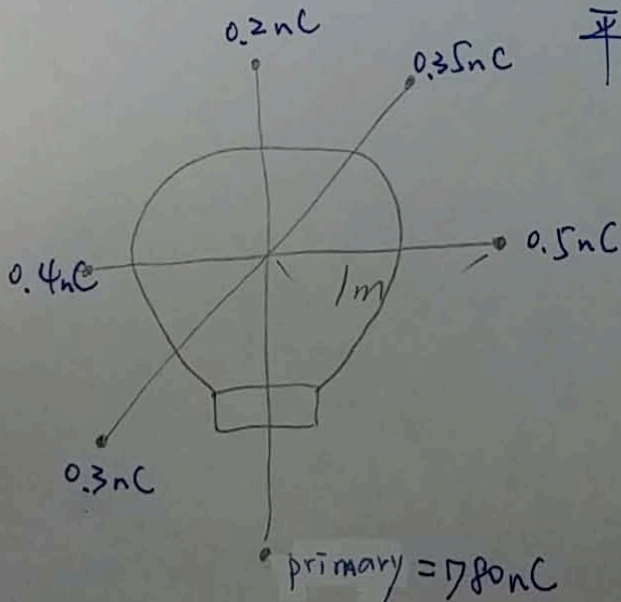 0.2nC
0.35nC
0.4nC
0.5nC
1m
0.3nC
primary = 780nC